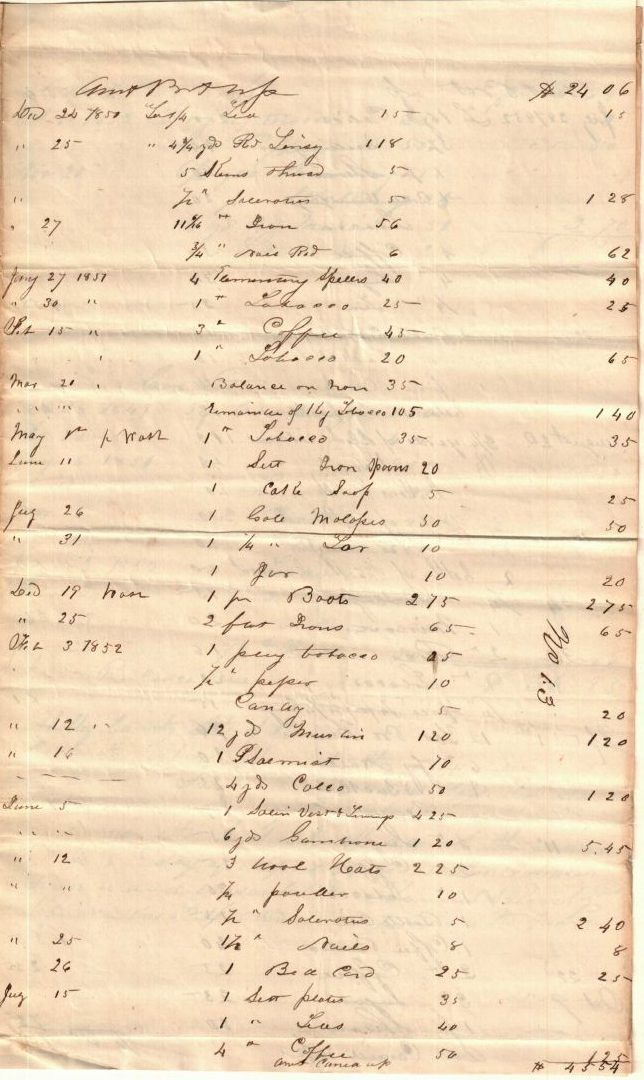 Amt Bot up $ 24 06
Dec 24 1850 To 1/4 Tea 15 15
" 25 " 4 3/4 yds Rd Linsy 118
5 Skeins thread 5
" 1/2 " Saleratus 5 1 28
" 27 11 6/16 " Iron 56
3/4 " Nail Rod 6 62
Jany 27 1851 4 Elementary Spellers 40 40
" 30 " 1 " Tobacco 25 25
Feb 15 " 3 " Coffee 45
" 1 " Tobacco 20 65
Mar 21 " Balance on Iron 35
" " Remainder of 1 kg Tobacco 105 1 40
May 1 " Tobacco 35 35
June 11 1 Sett Iron Spoons 20
1 Cake Soap 5 25
Jug 26 1 Gole Molases 50 50
" 31 1 1/4 " Tar 10
1 Jar 10 20
Dec 19 1 pr Boots 2 75 2 75
" 25 2 flat Irons 65 65
Feb 3 1852 1 plug tobacco 5
1/2 " peper 10
Candy 5 20
No 13
" 12 " 12 yds Muslin 120 1 20
" 16 1 Psalmist 70
4 yds Calco 50 1 20
June 5 1 Satin Vest & Trimings 4 25
" " 6 yds Gambroone 1 20 5.45
" 12 3 wool Hats 2 25
" " 1/4 powder 10
1/2 " Saleratus 5 2 40
" 25 1 1/2 " Nails 8 8
" 26 1 Bed Cord 25 25
Jug 15 1 Sett plates 35
1 " Teas 40
4 " Coffee 50 1 25
Amt Caried up $ 45 54